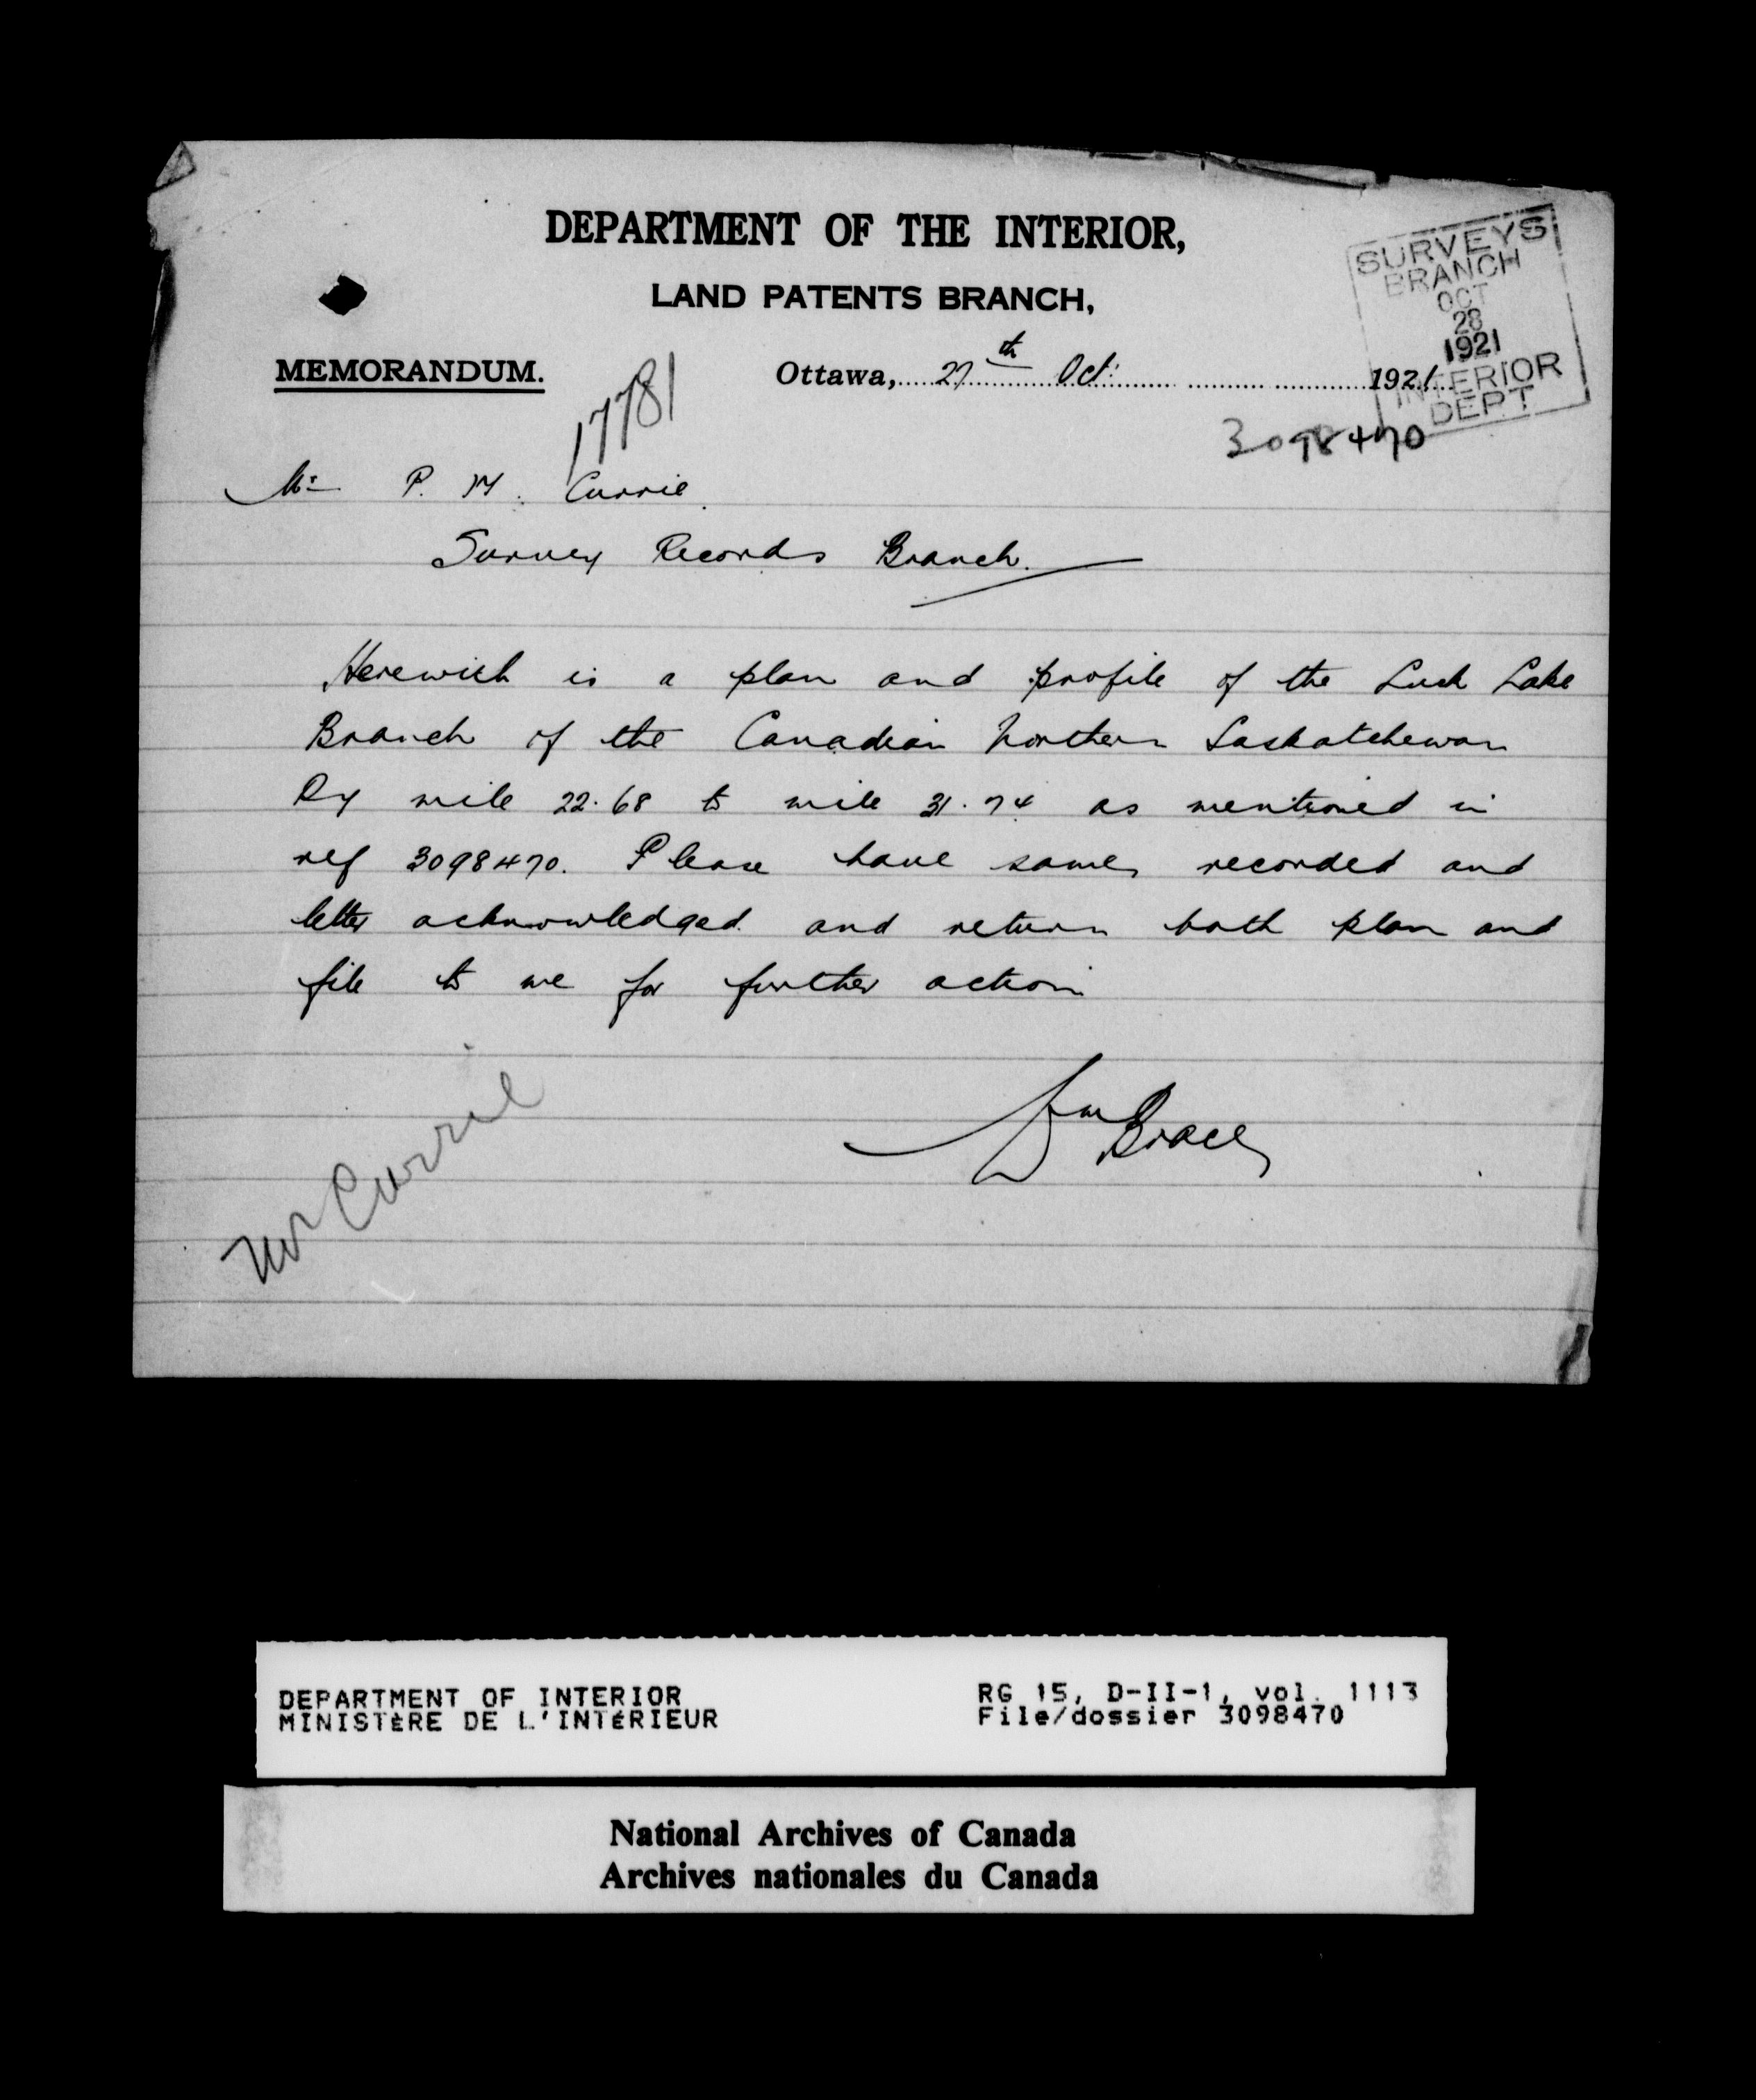 DEPARTMENT OF THE INTERIOR,
LAND PATENTS BRANCH,
SURVEYS
BRANCH
OCT
28
1921
INTERIOR
DEPT
MEMORANDUM.
Ottawa, 27th Oct: 1921
17781
3098470
Mr P. M. Currie
Survey Records Branch.
Herewith is a plan and profile of the Luck Lake
Branch of the Canadian Northern Saskatchewan
Ry mile 22.68 to mile 31.74 as mentioned in
ref 3098470. Please have same recorded and
letter acknowledged and return both plan and
file to me for further action
Wm Brace
Mr Currie
DEPARTMENT OF INTERIOR
MINISTÈRE DE L'INTÉRIEUR
RG 15, D-II-1, vol. 1113
File/dossier 3098470
National Archives of Canada
Archives nationales du Canada